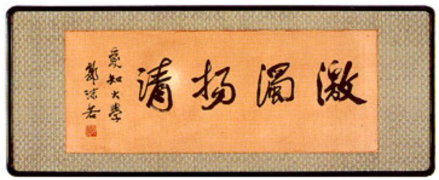 激濁扬清
爱知大學
郭沫若